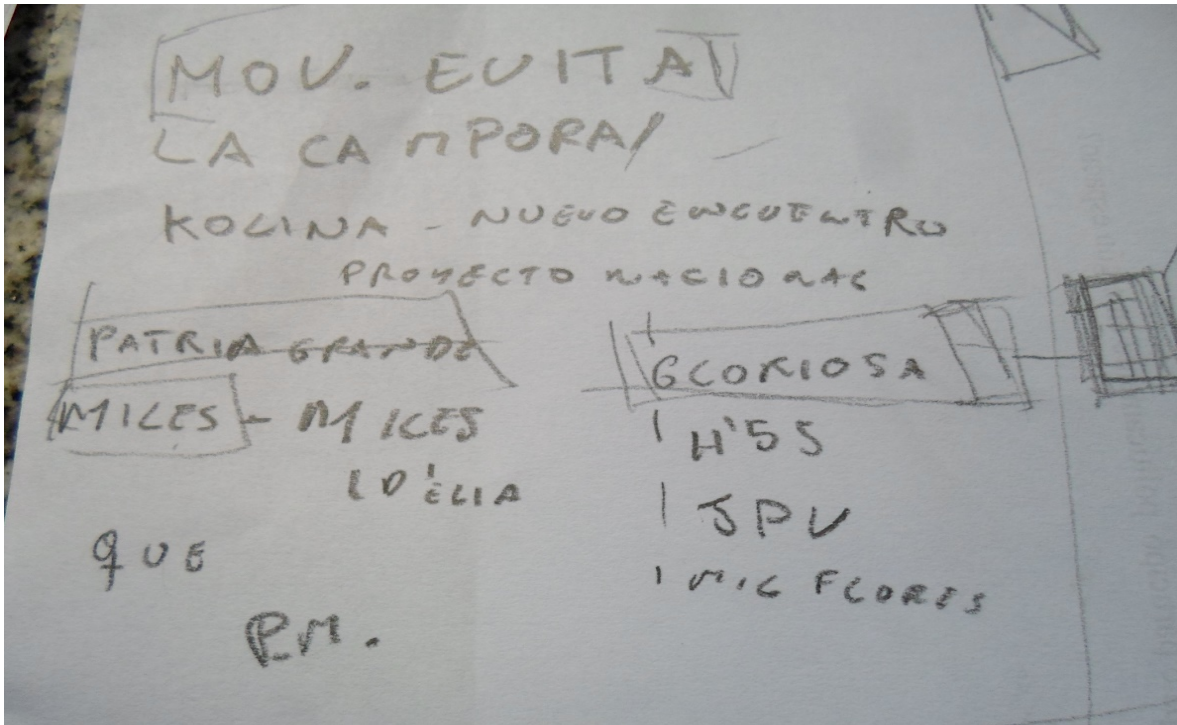 MOV. EVITA
LA CAMPORA
KOLINA - NUEVO ENCUENTRO
PROYECTO NACIONAL
PATRIA GRANDE
MILES - MILES
D'ELIA
QUE
P.M.
GLORIOSA
H'55
JPV
MIL FLORES